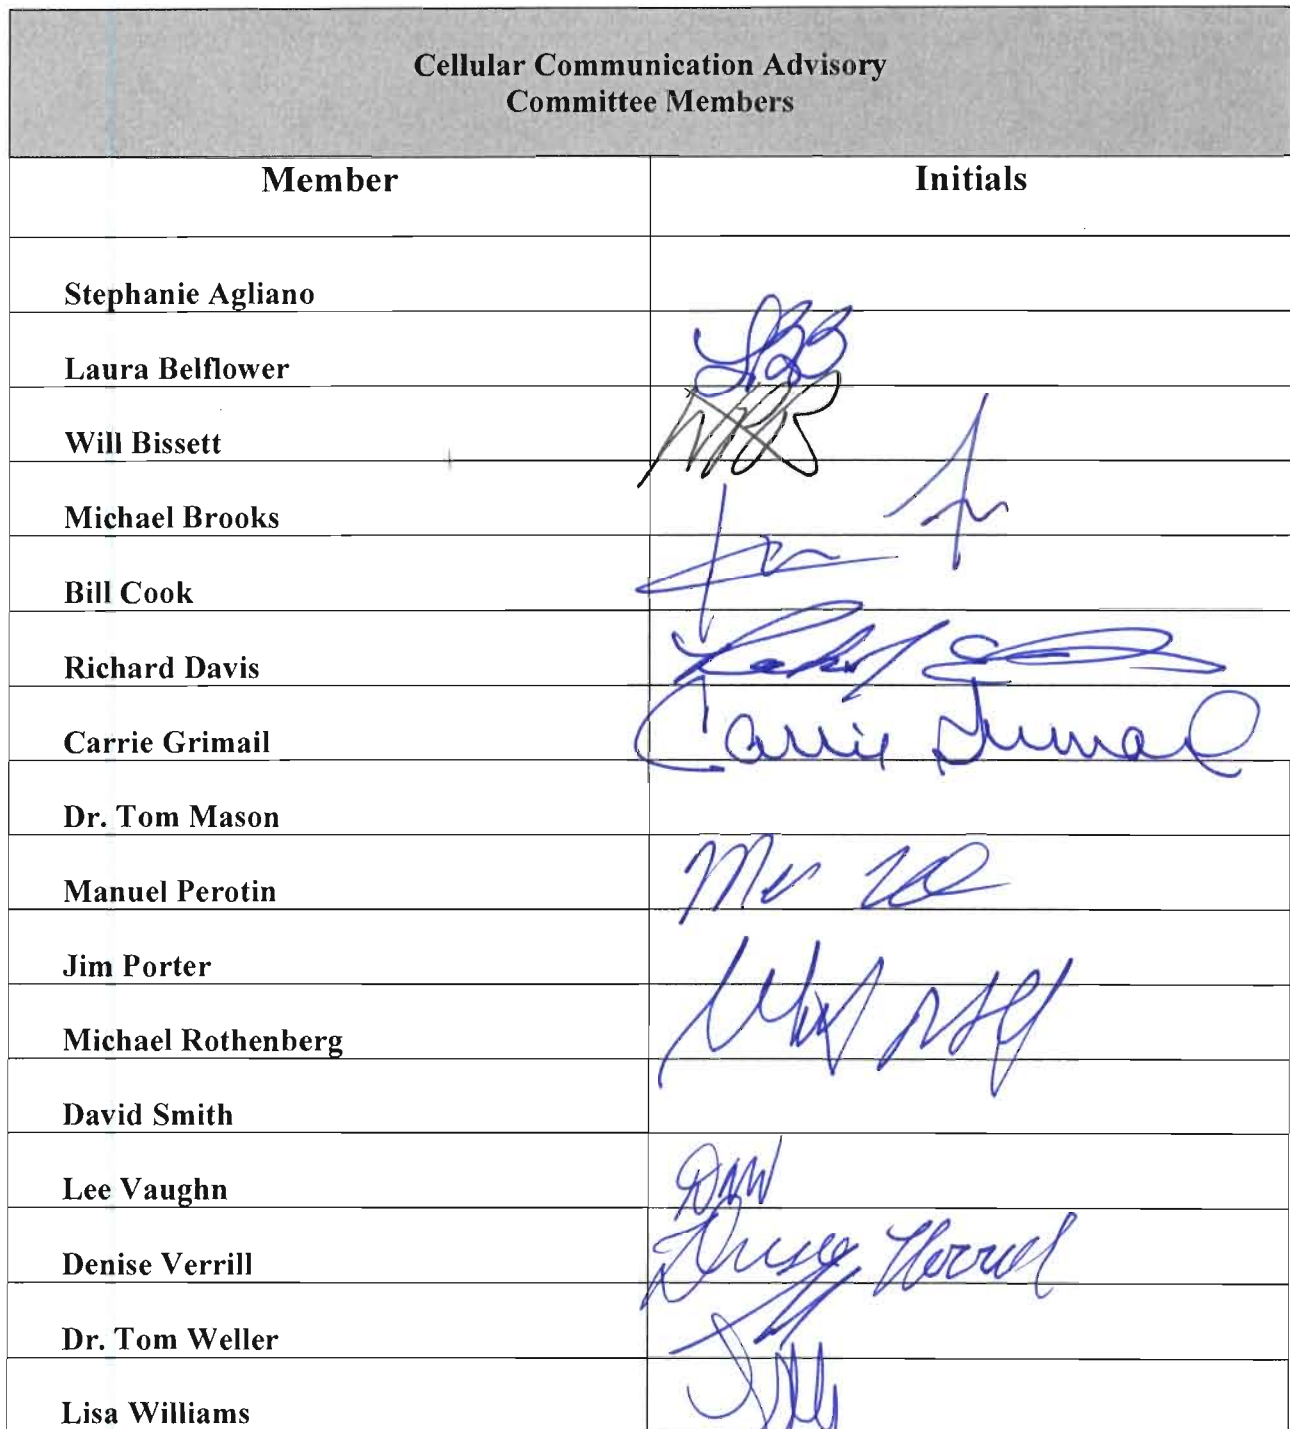 Cellular Communication Advisory
Committee Members
Member Initials
Stephanie Agliano
Laura Belflower LBB
Will Bissett
Michael Brooks
Bill Cook
Richard Davis
Carrie Grimail Carrie Grimail
Dr. Tom Mason
Manuel Perotin
Jim Porter
Michael Rothenberg
David Smith
Lee Vaughn
Denise Verrill Denise Verrill
Dr. Tom Weller
Lisa Williams